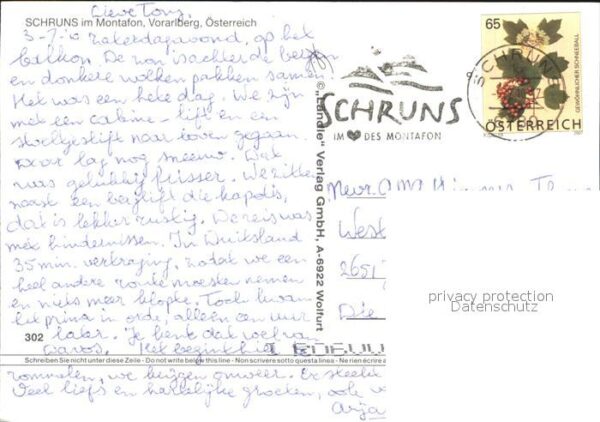 Lieve Tony,
SCHRUNS im Montafon, Vorarlberg, Österreich
3-7-10 zaterdagavond, op het
balkon. De zon is achter de bergen
en donkere wolken pakken samen.
Het was een hete dag. We zijn
met een cabine-lift en een
stoeltjeslift naar boven gegaan.
Daar lag nog sneeuw. Dat
was gelukkig frisser. We zitten
naast een berglift die kapot is,
dat is lekker rustig. De reis was
met hindernissen. In Duitsland
35 min. vertraging, zodat we een
heel andere route moesten nemen
en niets meer klopte. Toch kwam
het prima in orde, alleen een uur
later. Je kent dat wel van
Het begint hier
rommelen, we krijgen onweer. Er
Veel liefs en hartelijke groeten, ook v
Arja
302
Schreiben Sie nicht unter diese Zeile - Do not write below this line - Non scrivere sotto questa linea - Ne rien écrire a
© "Ländle" Verlag GmbH, A-6922 Wolfurt
SCHRUNS
IM DES MONTAFON
65
GEWÖHNLICHER SCHNEEBALL
ÖSTERREICH
2007
Mevr.
West
2651
Die
privacy protection
Datenschutz